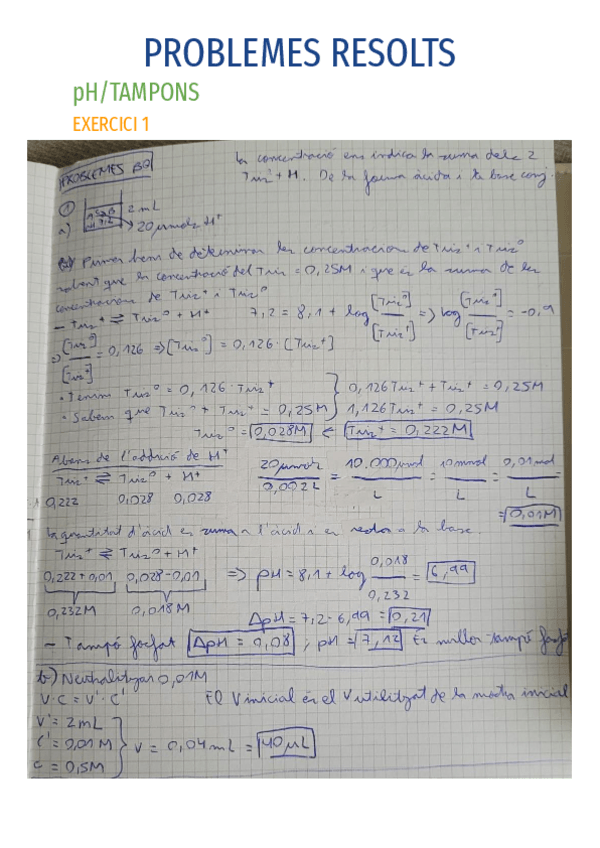 PROBLEMES RESOLTS
pH/TAMPONS
EXERCICI 1
PROBLEMES BQ
La concentració ens indica la suma dels 2
Tris + H. De la forma àcida i la base conj.
① 2 mL
a) 20 µmols H⁺
Primer hem de determinar les concentracions de Tris⁺ i Tris⁰
sabent que la concentració del Tris = 0,25M i que és la suma de les
concentracions de Tris⁺ i Tris⁰
- Tris⁺ ⇌ Tris⁰ + H⁺ 7,2 = 8,1 + log [Tris⁰]/[Tris⁺] => log [Tris⁰]/[Tris⁺] = -0,9
=> [Tris⁰]/[Tris⁺] = 0,126 => [Tris⁰] = 0,126 · [Tris⁺]
• Tenim Tris⁰ = 0,126 · Tris⁺ } 0,126 Tris⁺ + Tris⁺ = 0,25M
• Sabem que Tris⁰ + Tris⁺ = 0,25M } 1,126 Tris⁺ = 0,25M
Tris⁰ = 0,028M ← Tris⁺ = 0,222M
Abans de l'addició de H⁺
Tris⁺ ⇌ Tris⁰ + H⁺ 20 µmols/0,002 L = 10.000 µmol/L = 10 mmol/L = 0,01 mol/L
0,222 0,028 0,028 = 0,01M
La quantitat d'àcid es suma a l'àcid i es resta a la base.
Tris⁺ ⇌ Tris⁰ + H⁺
0,222 + 0,01 0,028 - 0,01 => pH = 8,1 + log 0,018/0,232 = 6,99
0,232M 0,018M
ΔpH = 7,2 - 6,99 = 0,21
- Tampó fosfat ΔpH = 0,08 ; pH = 7,12 És millor tampó fosf
b) Neutralitzar 0,01M
V · C = V' · C' El V inicial és el V utilitzat de la mostra inicial
V' = 2mL
C' = 0,01 M } V = 0,04 mL = 40 µL
C = 0,5M